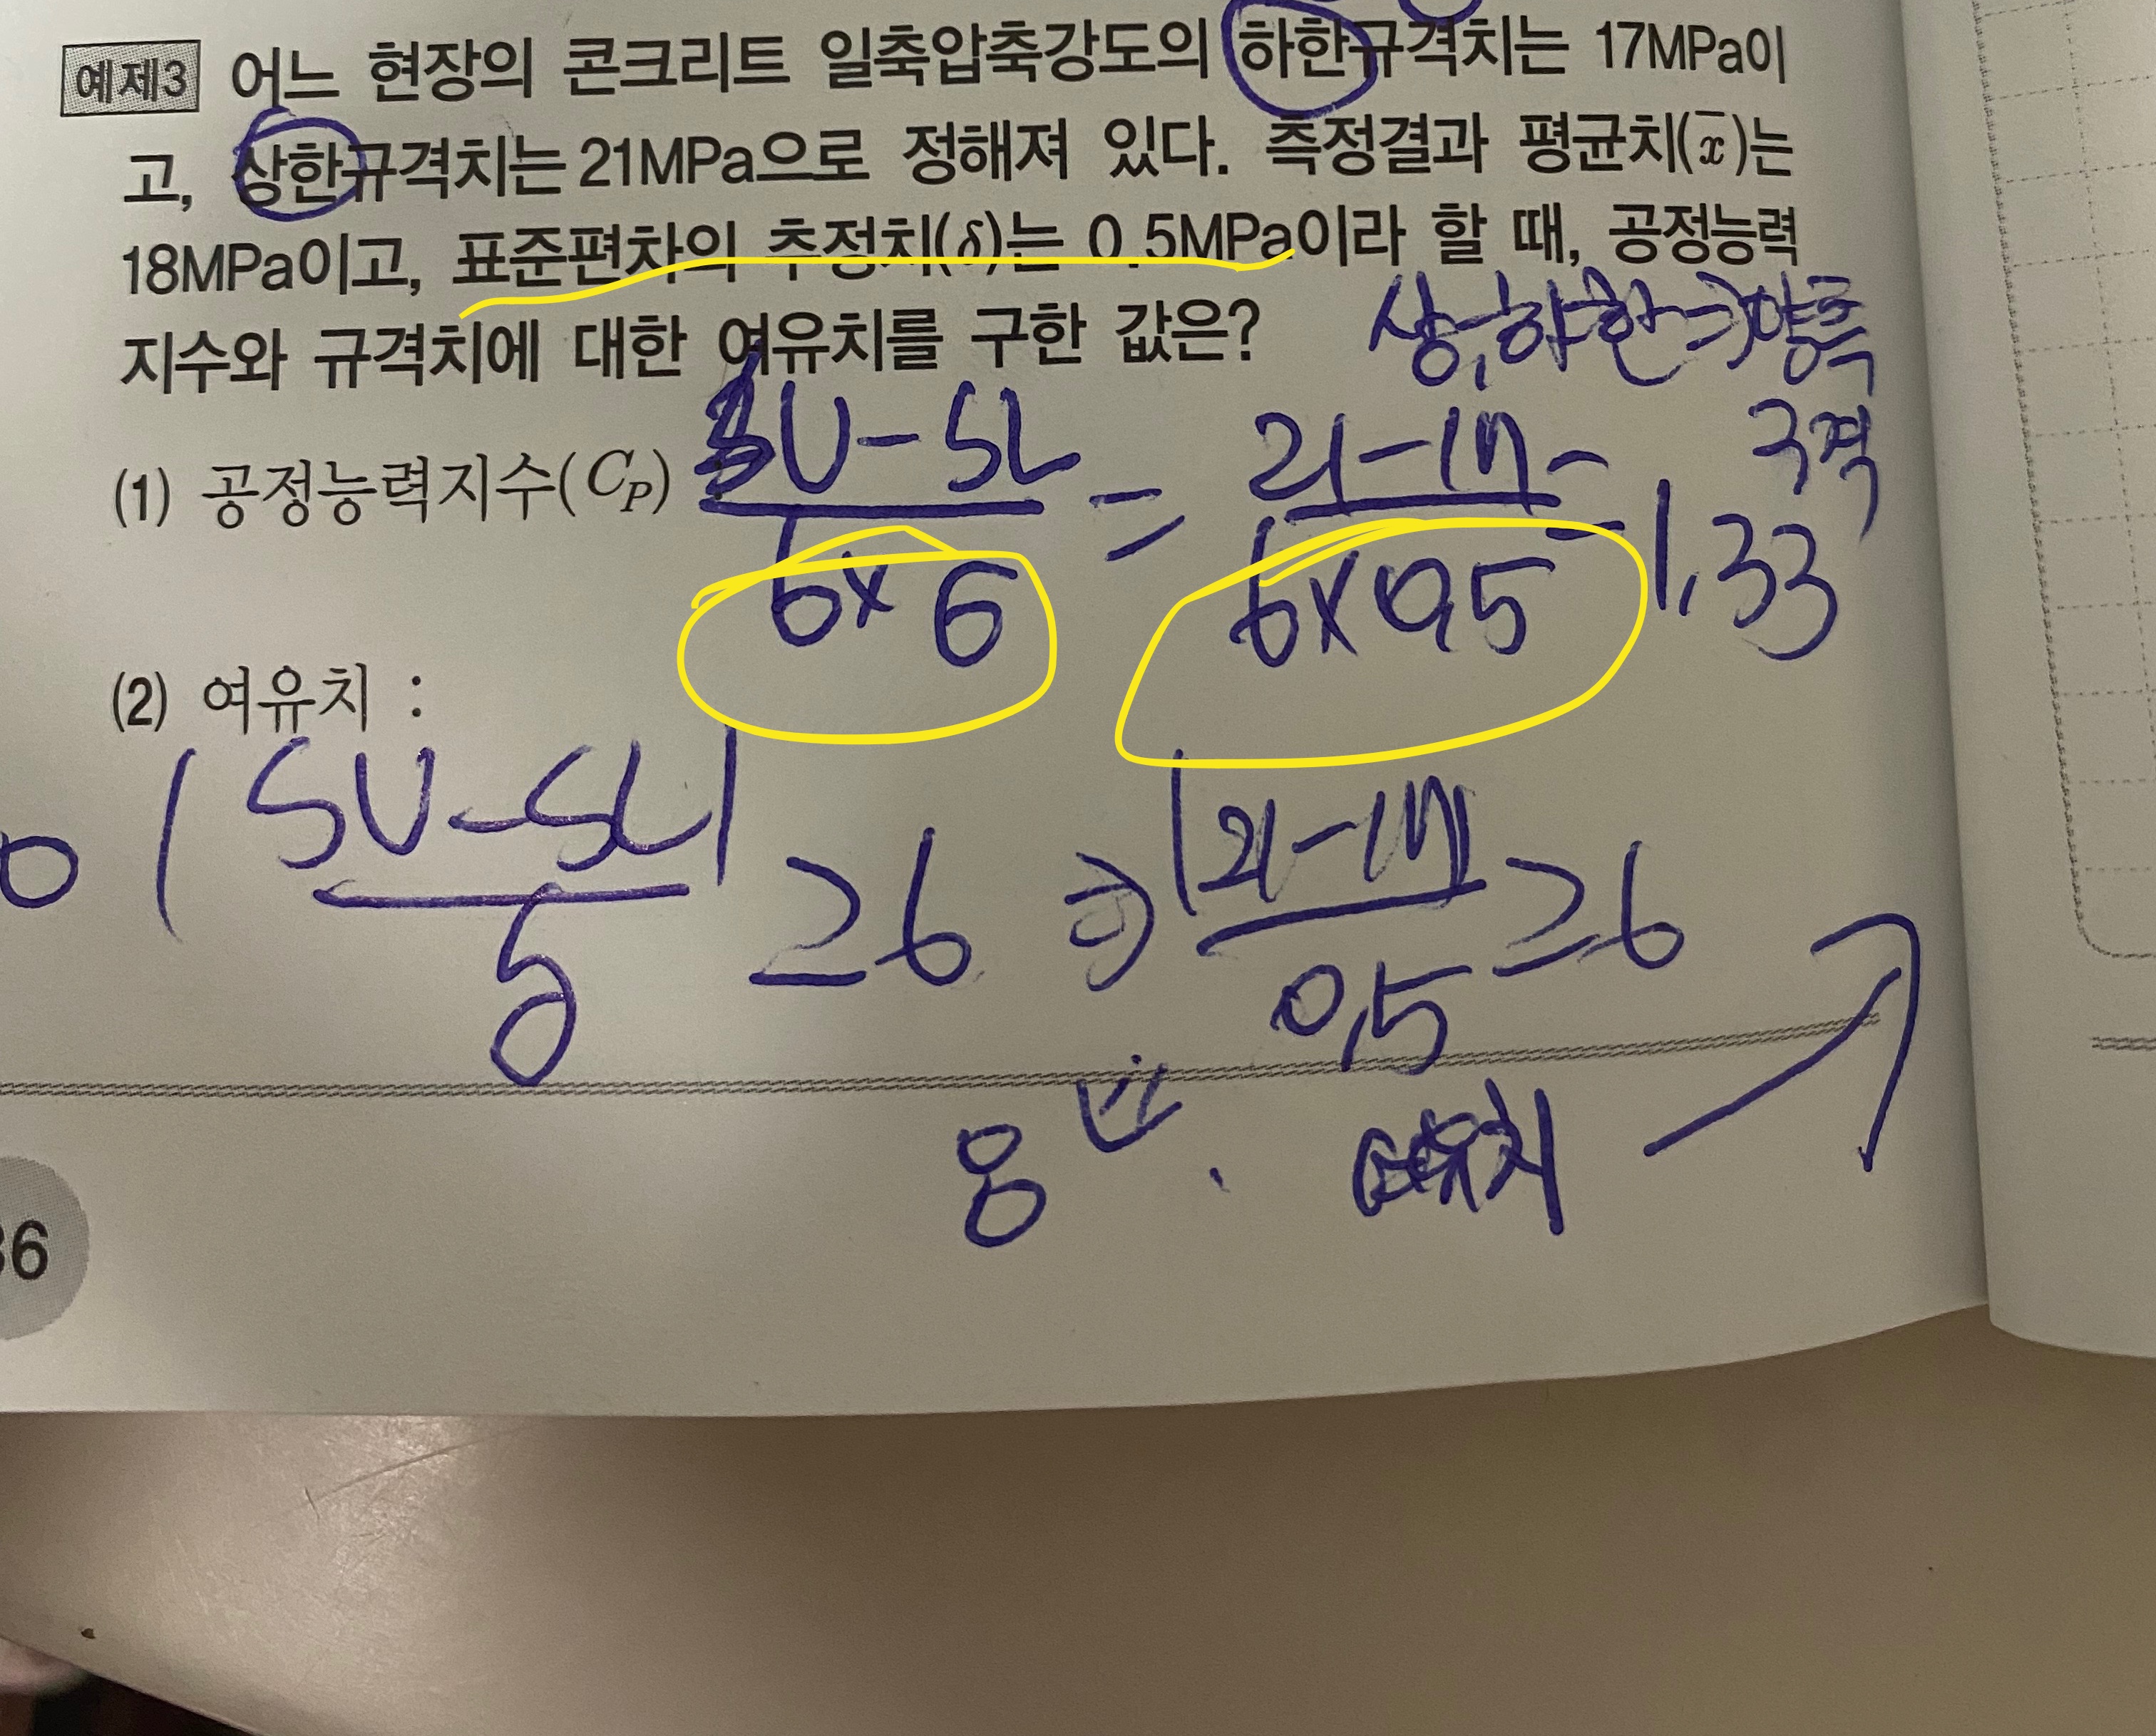 예제3 어느 현장의 콘크리트 일축압축강도의 하한규격치는 17MPa이
고, 상한규격치는 21MPa으로 정해져 있다. 측정결과 평균치(x̄)는
18MPa이고, 표준편차의 추정치(δ)는 0.5MPa이라 할 때, 공정능력
지수와 규격치에 대한 여유치를 구한 값은?
상,하한⇒양측
규격
(1) 공정능력지수(C_P) : SU-SL / 6×6 = 21-17 / 6×0.5 = 1.33
(2) 여유치 :
|SU-SL| / δ ≥ 6 ⇒ |21-17| / 0.5 ≥ 6
8
36